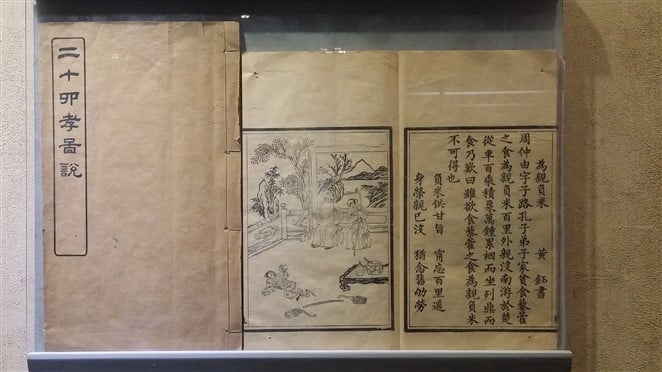 二十四孝啚說
為親負米 黃鈺書
周仲由字子路孔子弟子家貧食藜藿
之食為親負米百里外親沒南游於楚
從車百乘積粟萬鍾累裀而坐列鼎而
食乃歎曰雖欲食藜藿之食為親負米
不可得也
負米供甘旨 甯忘百里遥
身榮親已沒 猶念舊劬勞